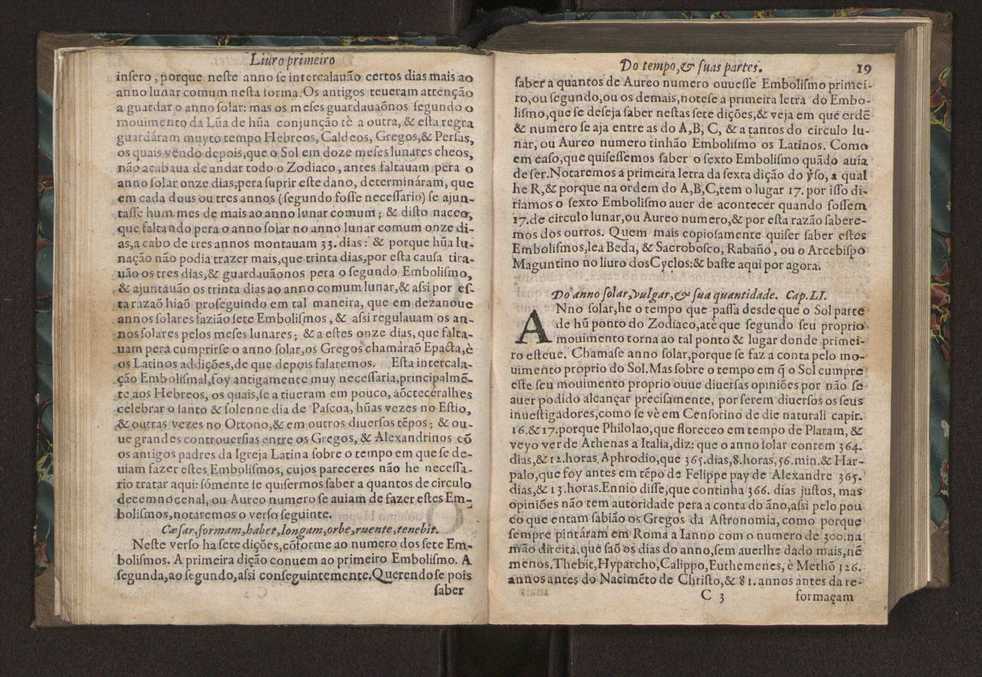 Liuro primeiro
insero, porque neste anno se intercalauão certos dias mais ao
anno lunar comum nesta forma. Os antigos teueram attenção
a guardar o anno solar: mas os meses guardauaõnos segundo o
mouimento da Lũa de hũa conjunção tè a outra, & esta regra
guardáram muyto tempo Hebreos, Caldeos, Gregos, & Persas,
os quais vendo depois, que o Sol em doze meses lunares cheos,
não acabaua de andar todo o Zodiaco, antes faltauam pera o
anno solar onze dias, pera suprir este dano, determináram, que
em cada dous ou tres annos (segundo fosse necessario) se ajun-
tasse hum mes de mais ao anno lunar comum; & disto naceo,
que faltando pera o anno solar no anno lunar comum onze di-
as, a cabo de tres annos montauam 33. dias: & porque hũa lu-
nação não podia trazer mais, que trinta dias, por esta causa tira-
uão os tres dias, & guardauãonos pera o segundo Embolismo,
& ajuntauão os trinta dias ao anno comum lunar, & assi por es-
ta razaõ hiaõ proseguindo em tal maneira, que em dezanoue
annos solares fazião sete Embolismos, & assi regulauam os an-
nos solares pelos meses lunares; & a estes onze dias, que falta-
uam pera cumprirse o anno solar, os Gregos chamáraõ Epacta, è
os Latinos addições, de que depois falaremos. Esta intercala-
ção Embolismal, foy antigamente muy necessaria, principalmẽ-
te aos Hebreos, os quais, se a tiueram em pouco, aõcteceralhes
celebrar o santo & solenne dia de Pascoa, hũas vezes no Estio,
& outras vezes no Ottono, & em outros diuersos tẽpos; & ou-
ue grandes controuersias entre os Gregos, & Alexandrinos cõ
os antigos padres da Igreja Latina sobre o tempo em que se de-
uiam fazer estes Embolismos, cujos pareceres não he necessa-
rio tratar aqui: sómente se quisermos saber a quantos de circulo
decemnouenal, ou Aureo numero se auiam de fazer estes Em-
bolismos, notaremos o verso seguinte.
Cæsar, formam, habet, longam, orbe, ruente, tenebit.
Neste verso ha sete dições, cõforme ao numero dos sete Em-
bolismos. A primeira dição conuem ao primeiro Embolismo. A
segunda, ao segundo, assi conseguintemente. Querendose pois
saber
Do tempo, & suas partes. 19
saber a quantos de Aureo numero ouuesse Embolismo primei-
ro, ou segundo, ou os demais, notese a primeira letra do Embo-
lismo, que se deseja saber nestas sete dições, & veja em que ordẽ
& numero se aja entre as do A, B, C, & a tantos do circulo lu-
nar, ou Aureo numero tinhão Embolismo os Latinos. Como
em caso, que quisessemos saber o sexto Embolismo quãdo auia
de ser. Notaremos a primeira letra da sexta dição do vso, a qual
he R, & porque na ordem do A, B, C, tem o lugar 17. por isso di-
riamos o sexto Embolismo auer de acontecer quando fossem
17. de circulo lunar, ou Aureo numero, & por esta razão sabere-
mos dos outros. Quem mais copiosamente quiser saber estes
Embolismos, lea Beda, & Sacrobosco, Rabano, ou o Arcebispo
Maguntino no liuro dos Cyclos: & baste aqui por agora.
Do anno solar, vulgar, & sua quantidade. Cap. LI.
ANno solar, he o tempo que passa desde que o Sol parte
de hũ ponto do Zodiaco, atè que segundo seu proprio
mouimento torna ao tal ponto & lugar donde primei-
ro esteue. Chamase anno solar, porque se faz a conta pelo mo-
uimento proprio do Sol. Mas sobre o tempo em q̃ o Sol cumpre
este seu mouimento proprio ouue diuersas opiniões por não se
auer podido alcançar precisamente, por serem diuersos os seus
inuestigadores, como se vè em Censorino de die naturali capit.
16. & 17. porque Philolao, que floreceo em tempo de Platam, &
veyo ver de Athenas a Italia, diz: que o anno solar contem 364.
dias, & 12. horas. Aphrodio, que 365. dias, 8. horas, 56. min. & Har-
palo, que foy antes em tẽpo de Felippe pay de Alexandre 365.
dias, & 13. horas. Ennio disse, que continha 366. dias justos, mas
opiniões não tem autoridade pera a conta do ãno, assi pelo pou
co que entam sabião os Gregos da Astronomia, como porque
sempre pintáram em Roma a Ianno com o numero de 300. na
mão direita, que saõ os dias do anno, sem auerlhe dado mais, nẽ
menos. Thebit, Hyparcho, Calippo, Euthemenes, è Methõ 126.
annos antes do Nacimẽto de Christo, & 81. annos antes da re-
C 3 formaçam